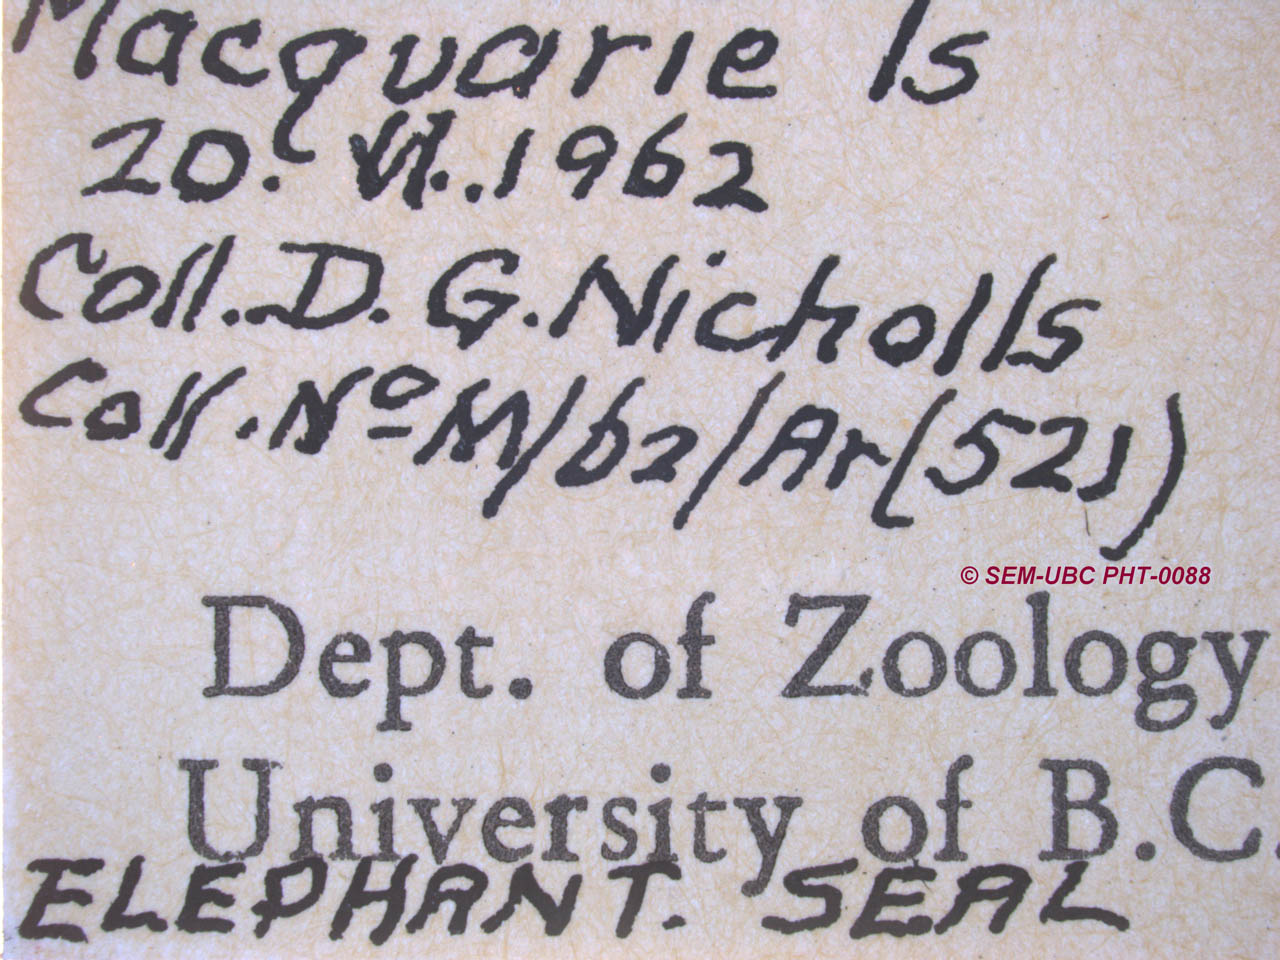 Macquarie Is
20. VI..1962
Coll. D. G. Nicholls
Coll. Nº M/62/Ar(521)
© SEM-UBC PHT-0088
Dept. of Zoology
University of B.C.
ELEPHANT. SEAL